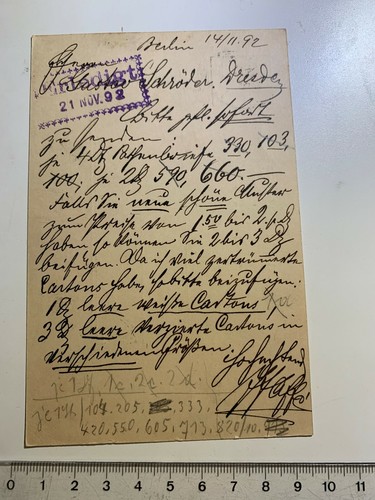 Berlin 14/11. 92
Herrn
Gustav Schröder. Dresden
Erledigt
21 NOV. 92
Bitte pfl. sofort
zu senden:
je 4 Dtz 330, 103,
100; je 2 Dtz 590, 660. —
Falls Sie neue schöne Muster
zum Preise von 1.50 bis 2.
haben so können Sie 2 bis 3 Dtz
beifügen. Da ich viel zertrümmerte
Cartons habe, so bitte beizufügen:
1 Dtz leere weiße Cartons
3 Dtz leere verzierte Cartons in
verschiedenen Größen.
Hochachtend
104. 205. 333,
420, 550, 605, 713, 820
0 1 2 3 4 5 6 7 8 9 10 11